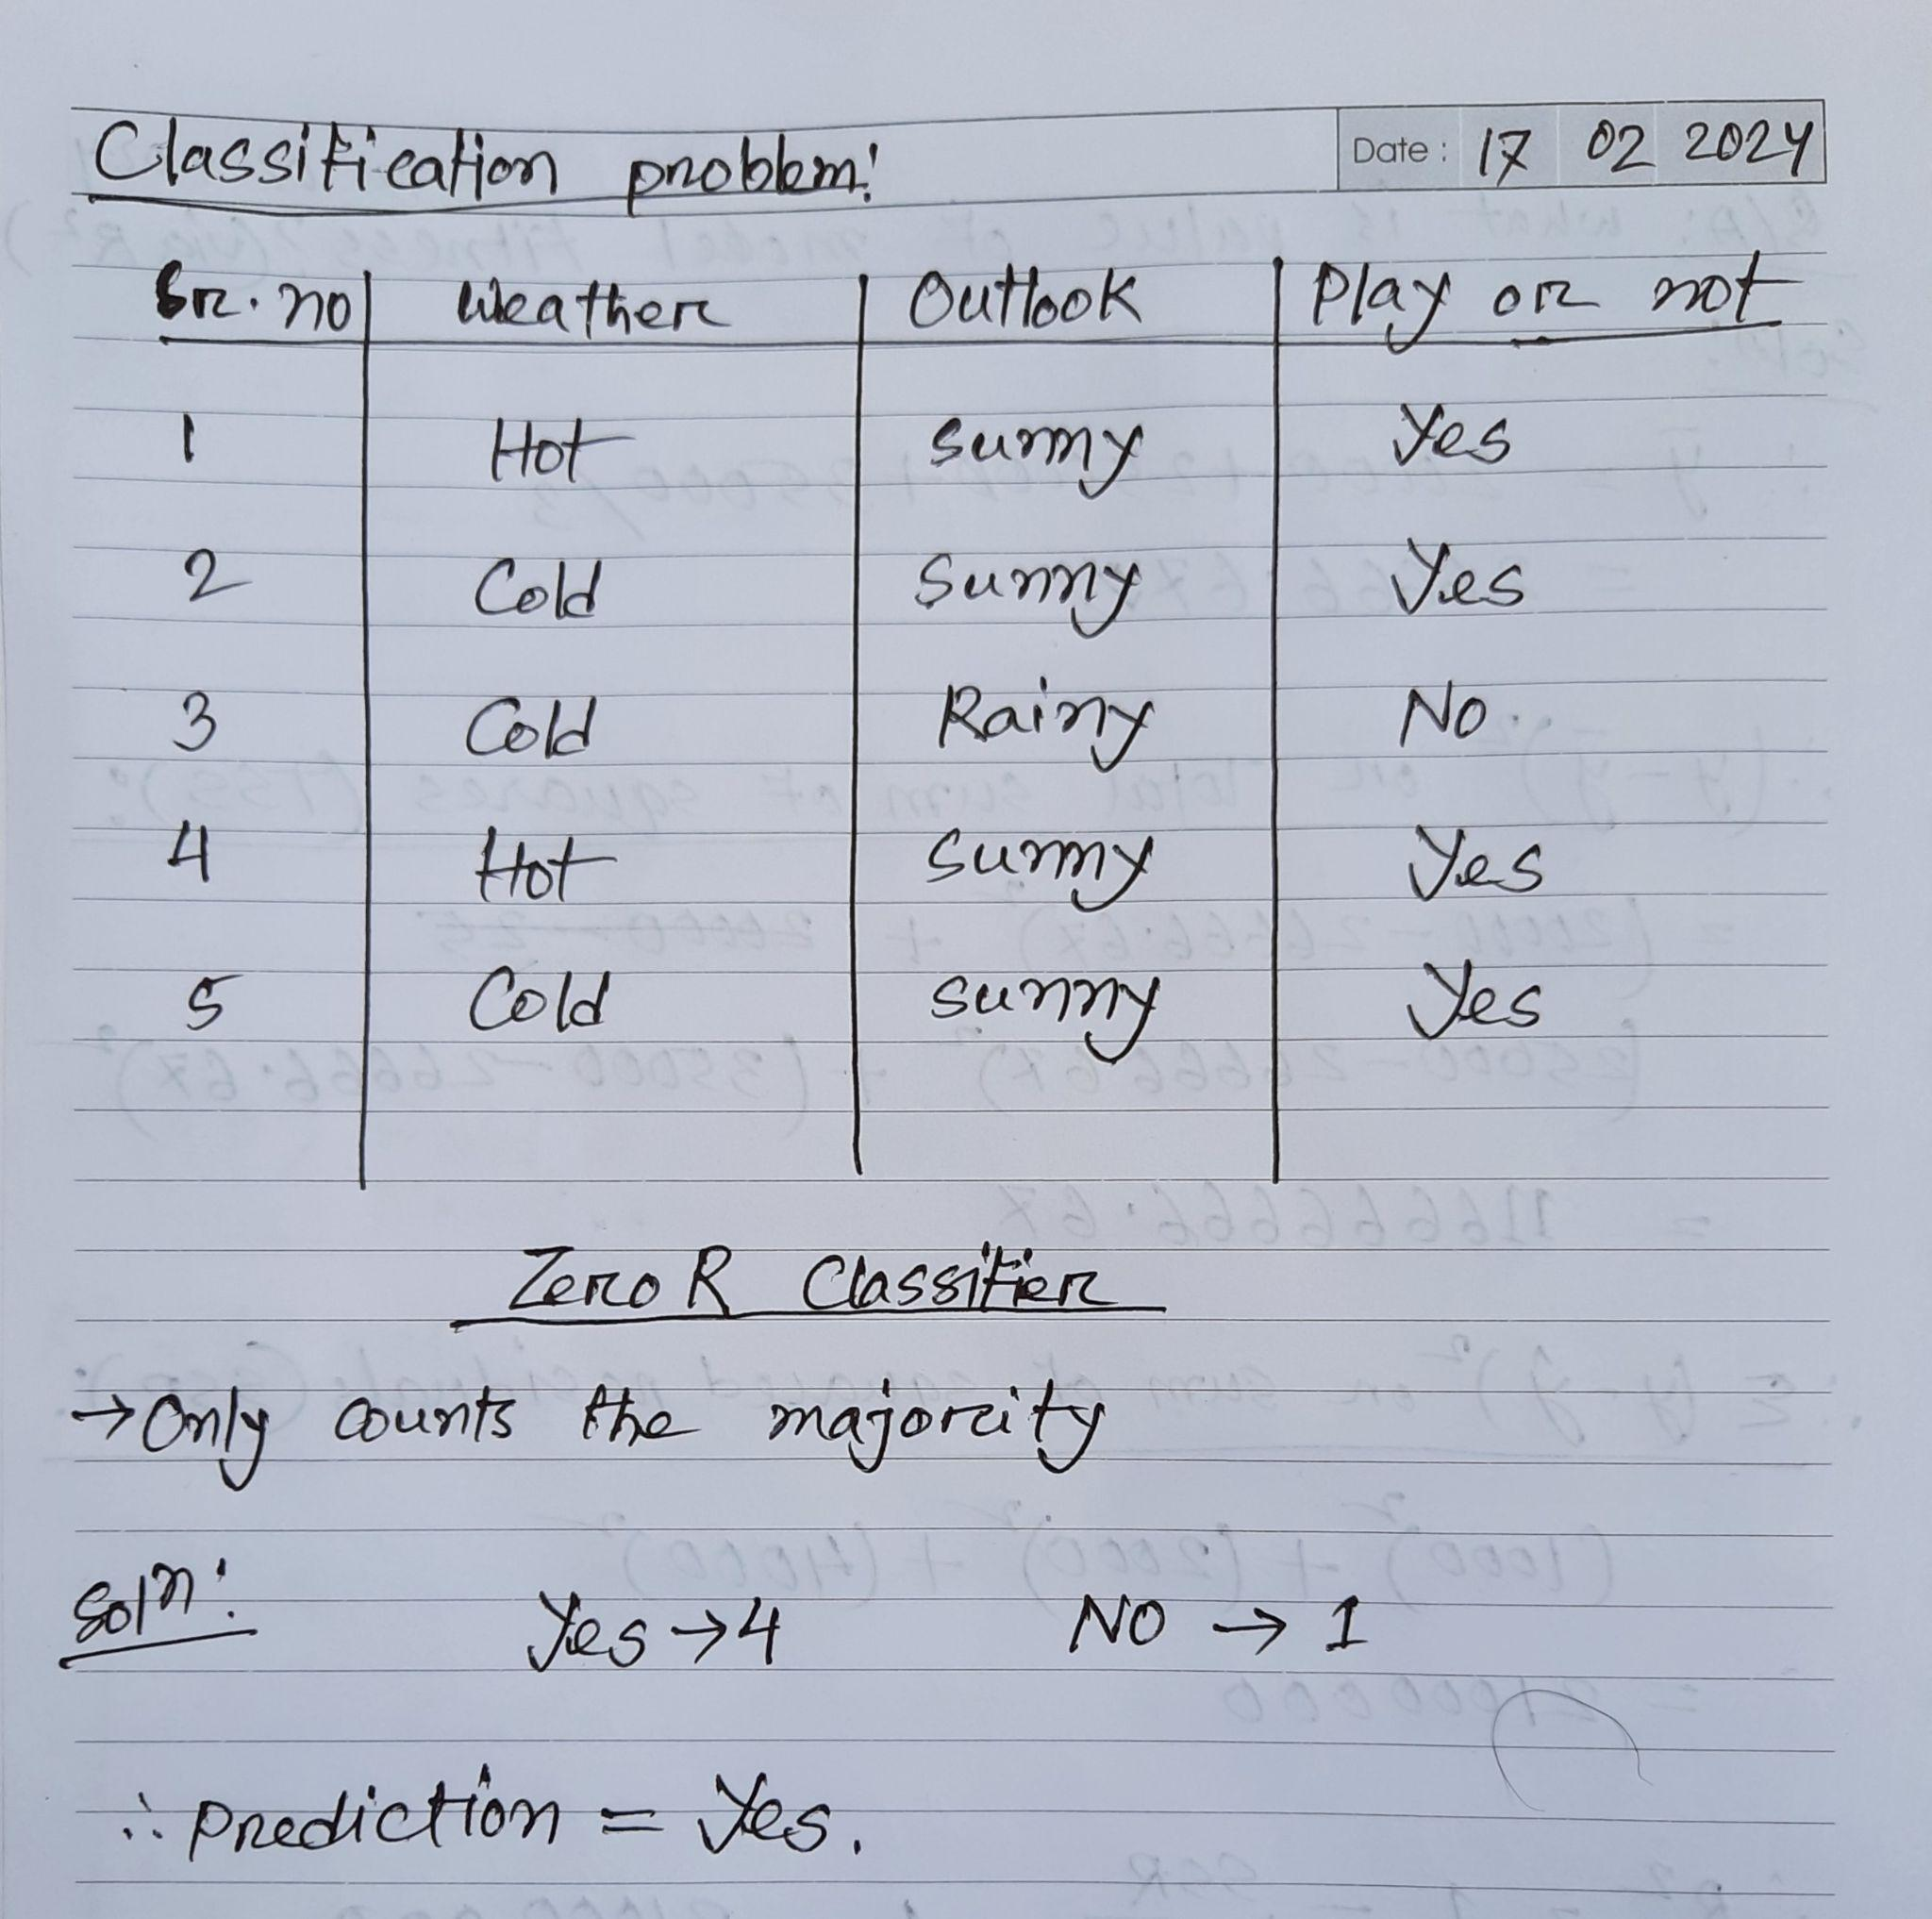 Classification problem:
Date: 17 02 2024
Sr. no Weather Outlook Play or not
1 Hot Sunny Yes
2 Cold Sunny Yes
3 Cold Rainy No
4 Hot Sunny Yes
5 Cold Sunny Yes
Zero R Classifier
→ Only counts the majority
Solⁿ: Yes → 4 NO → 1
∴ prediction = Yes.